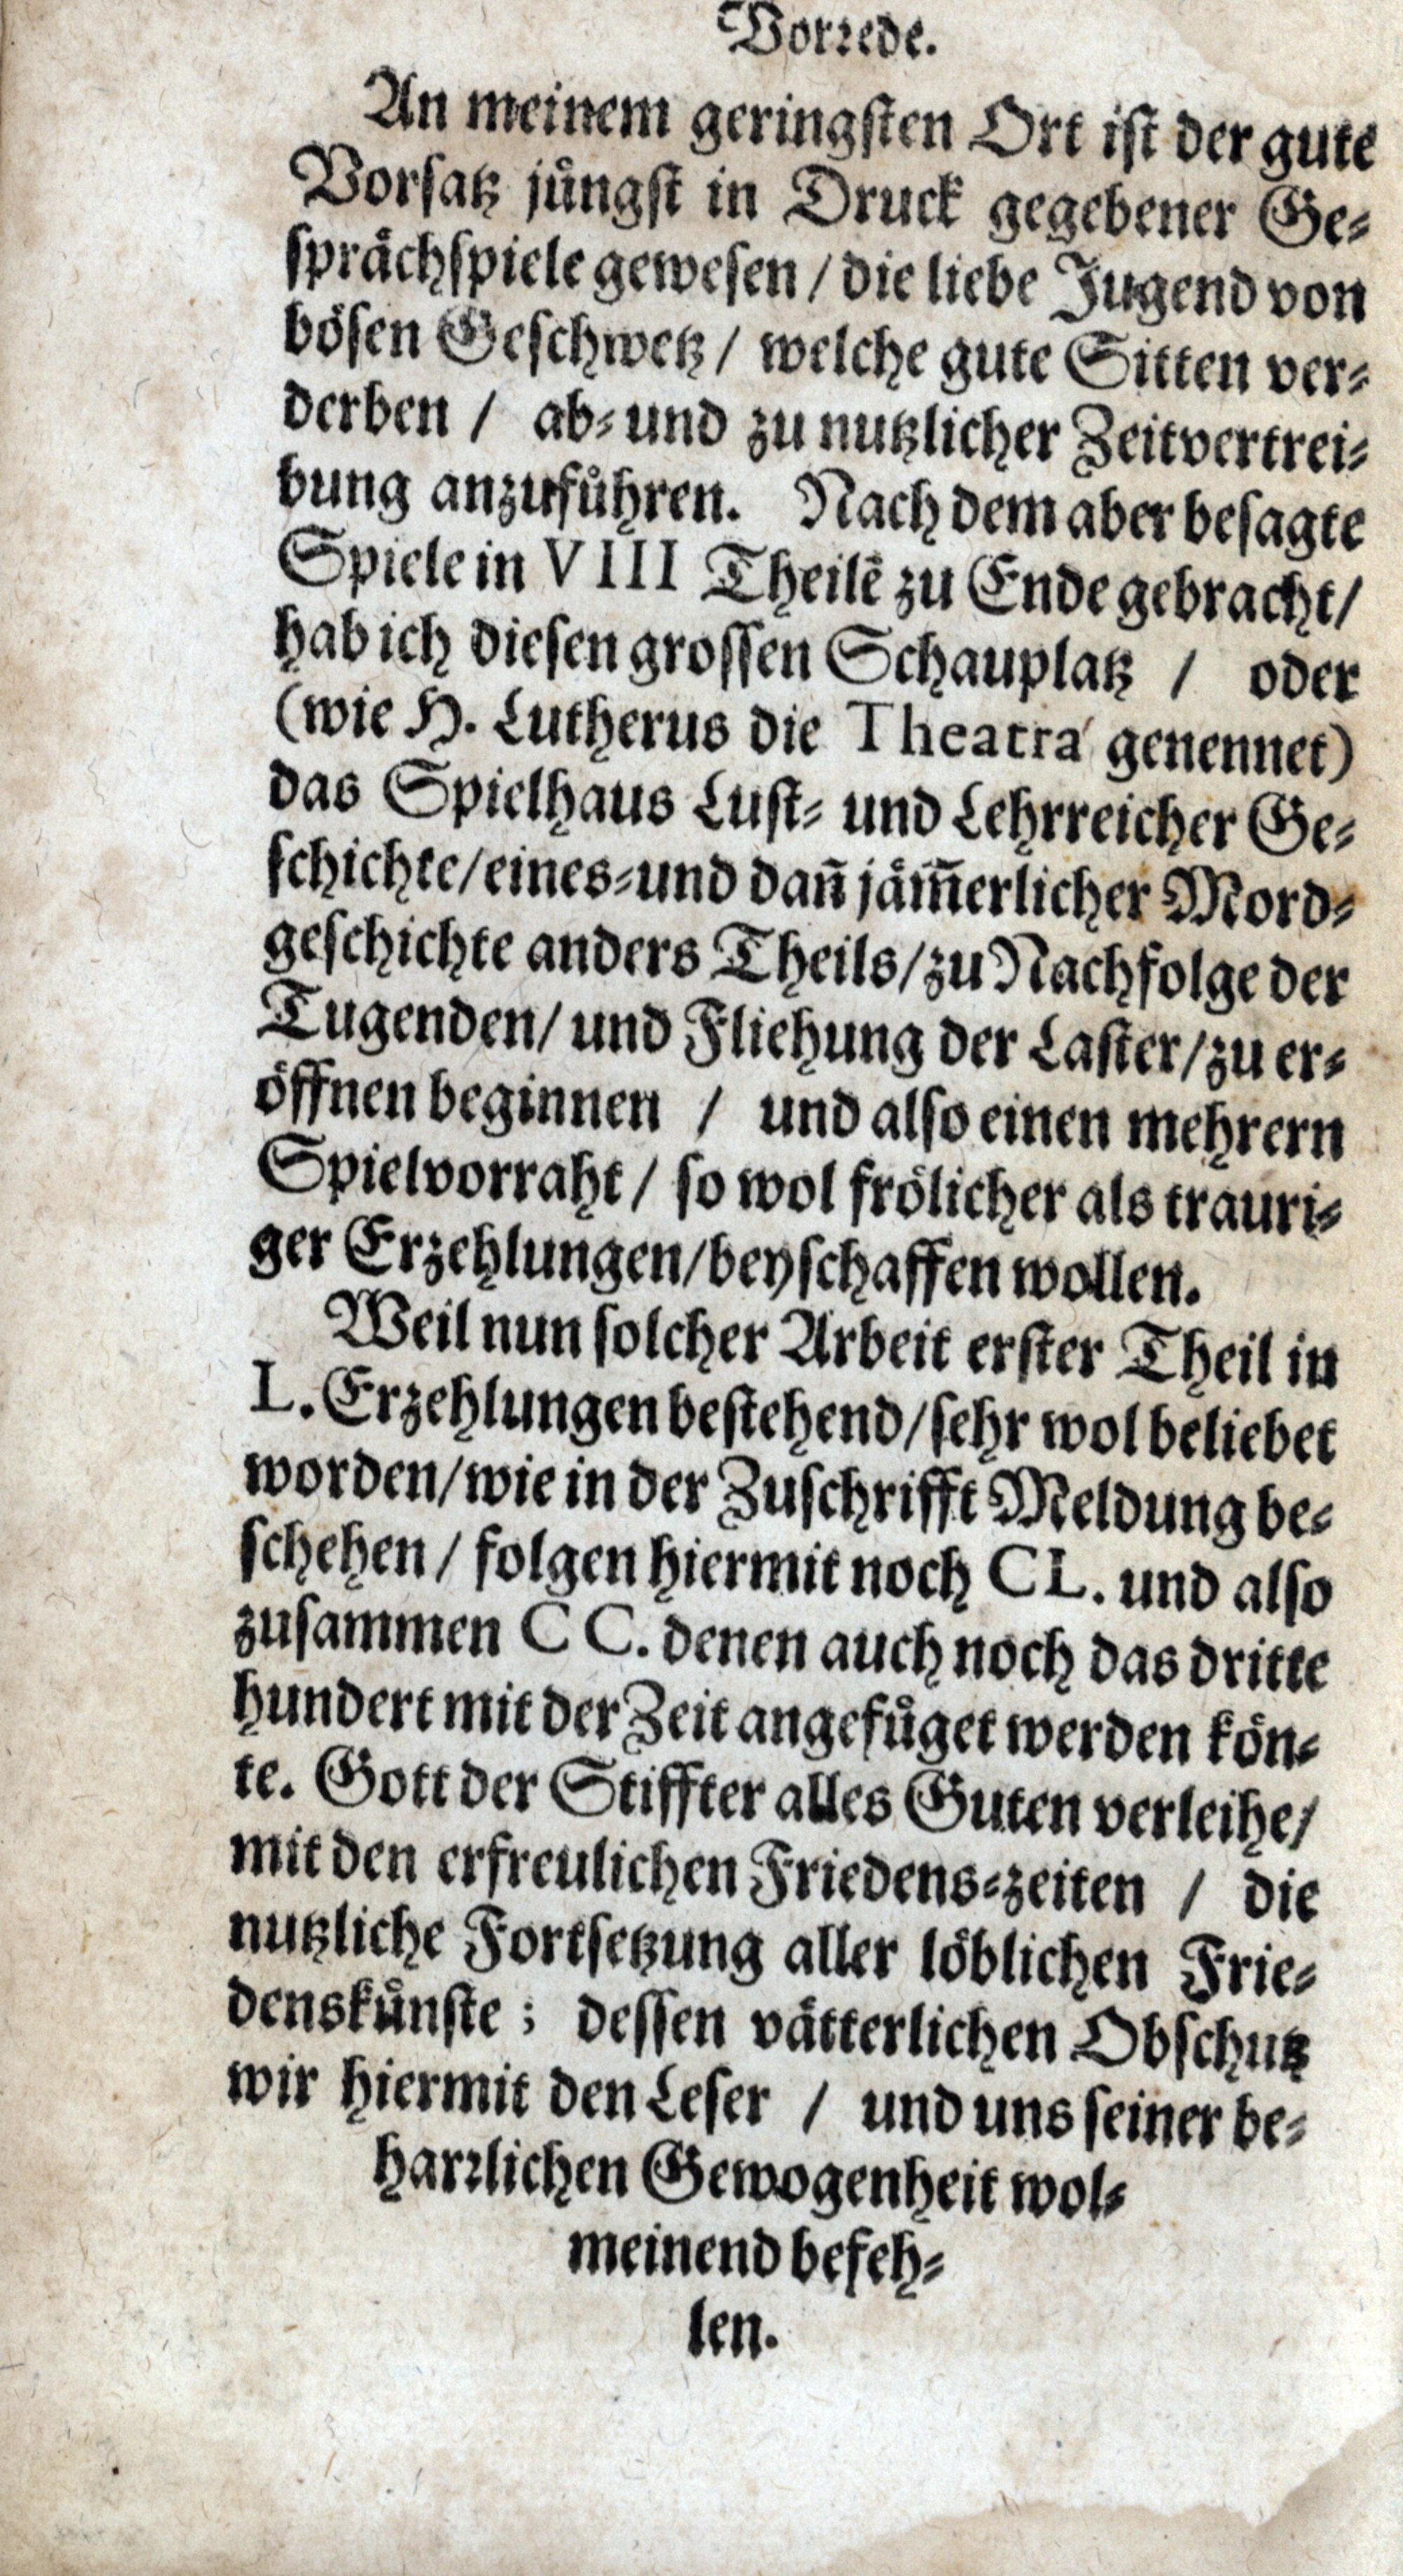 Vorꝛede.
An meinem geringſten Ort iſt der gute
Vorſatz juͤngſt in Druck gegebener Ge⸗
ſpraͤchſpiele geweſen / die liebe Jugend von
boͤſen Geſchwetz / welche gute Sitten ver⸗
derben / ab⸗ und zu nutzlicher Zeitvertrei⸗
bung anzufuͤhren. Nach dem aber beſagte
Spiele in VIII Theilẽ zu Ende gebracht /
hab ich dieſen groſſen Schauplatz / oder
(wie H. Lutherus die Theatra genennet)
das Spielhaus Luſt⸗ und Lehrreicher Ge⸗
ſchichte / eines⸗und dañ jaͤm̃erlicher Mord⸗
geſchichte anders Theils / zu Nachfolge der
Tugenden / und Fliehung der Laſter / zu er⸗
oͤffnen beginnen / und alſo einen mehrern
Spielvorraht / ſo wol froͤlicher als trauri⸗
ger Erzehlungen / beyſchaffen wollen.
Weil nun ſolcher Arbeit erſter Theil in
L. Erzehlungen beſtehend / ſehr wol beliebet
worden / wie in der Zuſchrifft Meldung be⸗
ſchehen / folgen hiermit noch CL. und alſo
zuſammen CC. denen auch noch das dritte
hundert mit der Zeit angefuͤget werden koͤn⸗
te. Gott der Stiffter alles Guten verleihe /
mit den erfreulichen Friedens⸗zeiten / die
nutzliche Fortſetzung aller loͤblichen Frie⸗
denskuͤnſte; deſſen vaͤtterlichen Obſchutz
wir hiermit den Leſer / und uns ſeiner be⸗
harꝛlichen Gewogenheit wol⸗
meinend befeh⸗
len.